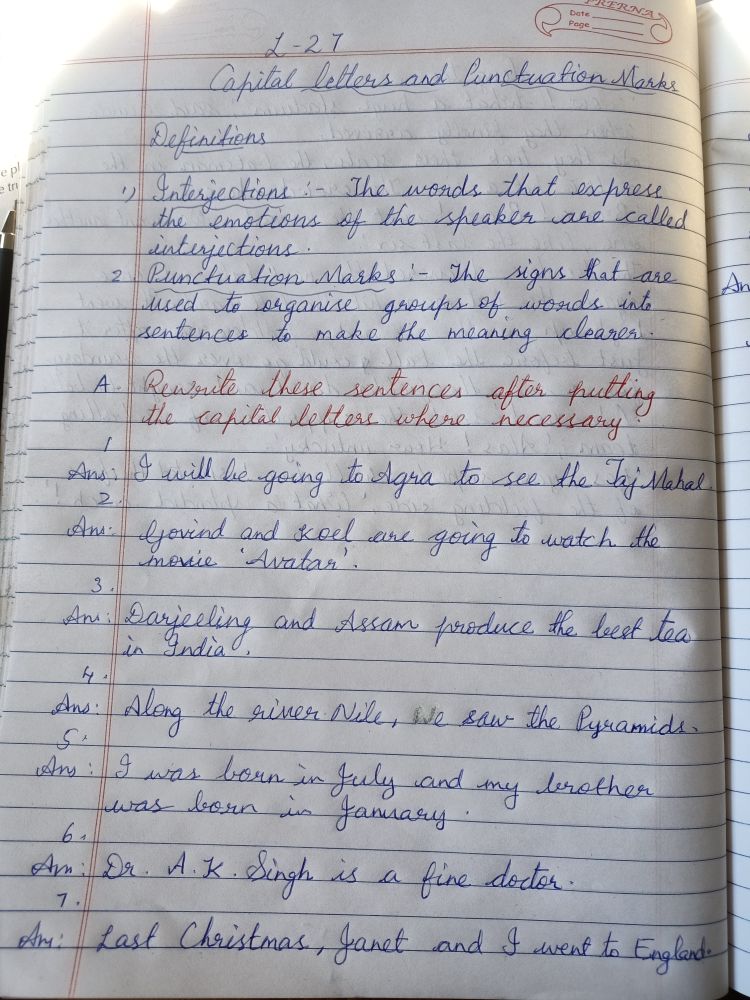 PRERNA
Date
Page
L-27
Capital letters and Punctuation Marks
Definitions
1) Interjections :- The words that express
the emotions of the speaker are called
interjections.
2 Punctuation Marks :- The signs that are
used to organise groups of words into
sentences to make the meaning clearer.
A. Rewrite these sentences after putting
the capital letters where necessary.
1
Ans: I will be going to Agra to see the Taj Mahal.
2.
Ans: Govind and Koel are going to watch the
movie 'Avatar'.
3.
Ans: Darjeeling and Assam produce the best tea
in India.
4.
Ans: Along the river Nile, we saw the Pyramids.
5.
Ans: I was born in July and my brother
was born in January.
6.
Ans: Dr. A. K. Singh is a fine doctor.
7.
Ans: Last Christmas, Janet and I went to England.
An